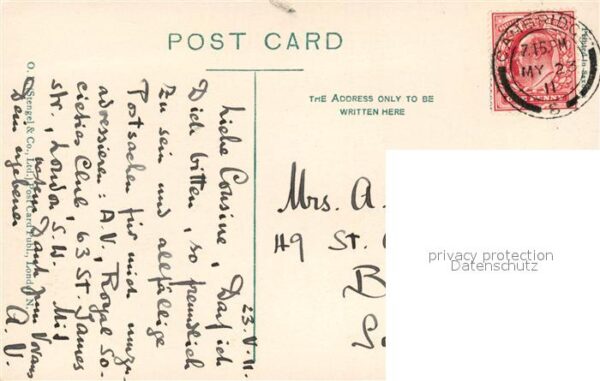 POST CARD
THE ADDRESS ONLY TO BE
WRITTEN HERE
Printed in Saxony
CAMBRIDGE
7.15 PM
MY 23
11
O. Stengel & Co., Ltd., Post Card Publ., London
23.V.11.
Liebe Cousine, Darf ich
Dich bitten, so freundlich
zu sein und allfällige
Postsachen für mich umzu-
adressieren: A.V., Royal So-
cieties Club, 63 St. James
Str., London S.W. Mit
Dank zum Voraus
Dein ergebener
A. V.
Mrs. A.
49 St.
privacy protection
Datenschutz